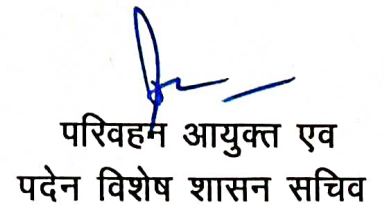 परिवहन आयुक्त एव
पदेन विशेष शासन सचिव